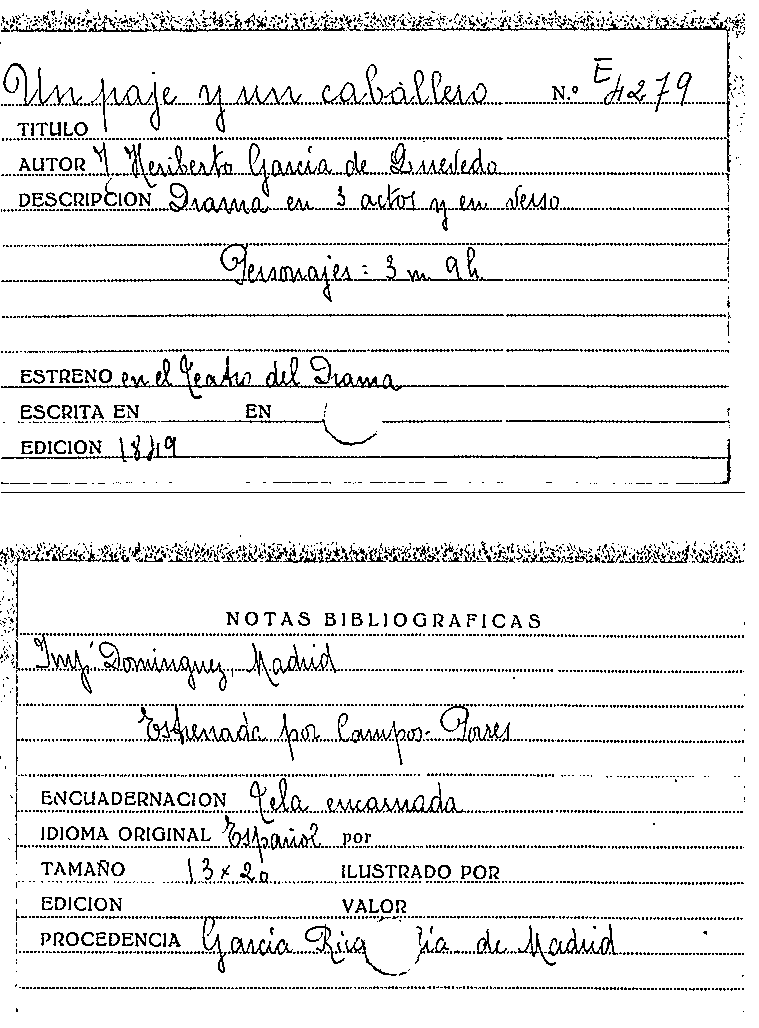 Un paje y un caballero N.º E 4279
TITULO
AUTOR J. Heriberto García de Quevedo
DESCRIPCION Drama en 3 actos y en verso
Personajes = 3 m 9 h
ESTRENO en el Teatro del Drama
ESCRITA EN EN
EDICION 1849
NOTAS BIBLIOGRAFICAS
Impª Dominguez, Madrid
Estrenada por Campos - Torres
ENCUADERNACION Tela encarnada
IDIOMA ORIGINAL Español por
TAMAÑO 13 x 20 ILUSTRADO POR
EDICION VALOR
PROCEDENCIA García Rica de Madrid